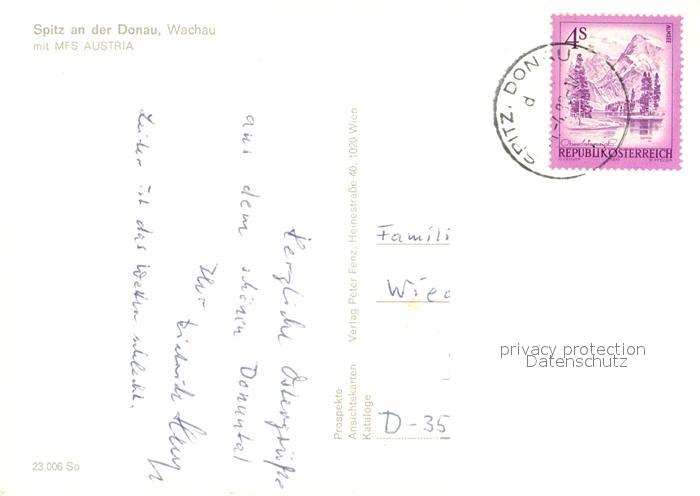 Spitz an der Donau, Wachau
mit MFS AUSTRIA
4S
ALMSEE
REPUBLIK ÖSTERREICH
SPITZ, DONAU
d
Herzliche Ostergrüße
aus dem schönen Donautal
Ihr Dietrich
Leider ist das Wetter schlecht.
Verlag Peter Fenz, Heinestraße 40, 1020 Wien
Prospekte
Ansichtskarten
Kataloge
Famili
Wied
D-35
privacy protection
Datenschutz
23.006 So